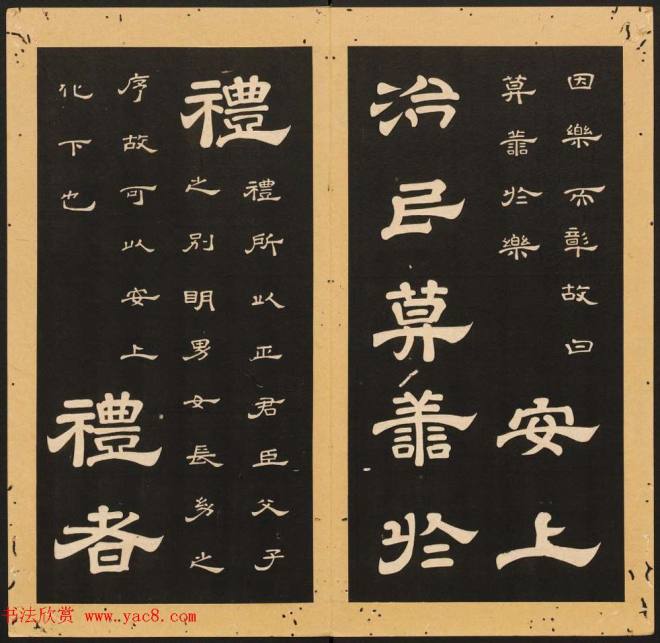 因樂而彰故曰
莫善於樂
安上
治民莫善於
禮
禮所以正君臣父子
之別明男女長幼之
序故可以安上
化下也
禮者
书法欣赏 www.yac8.com